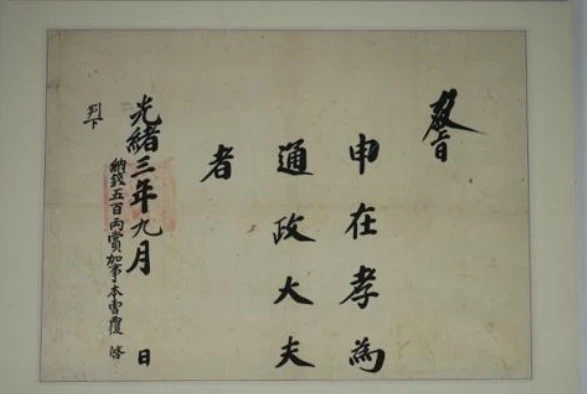 敎旨
申在孝為
通政大夫
者
光緖三年九月 日
納錢五百兩賞加事本曹覆 啓
判下